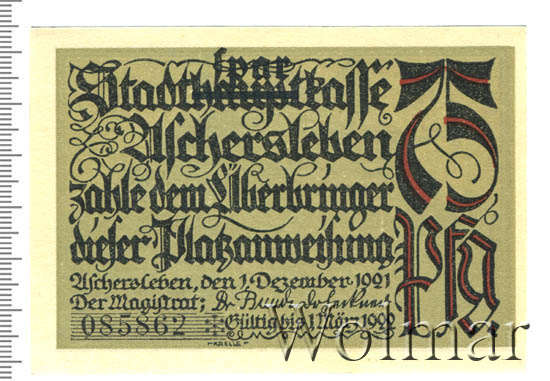 spar
Stadthauptkasse
Aschersleben
zahle dem Überbringer
dieser Platzanweisung
75
Pfg
Aschersleben, den 1. Dezember 1921
Der Magistrat;
085862
Gültig bis 1. März 1922
KRELLE
Wolmar